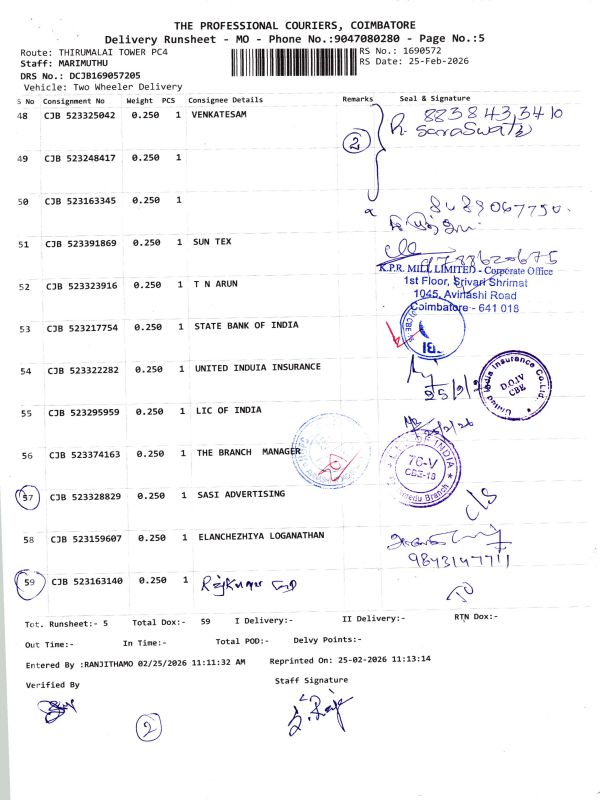 THE PROFESSIONAL COURIERS, COIMBATORE
Delivery Runsheet - MO - Phone No.:9047080280 - Page No.:5
Route: THIRUMALAI TOWER PC4
RS No.: 1690572
Staff: MARIMUTHU
RS Date: 25-Feb-2026
DRS No.: DCJB169057205
Vehicle: Two Wheeler Delivery
S No Consignment No Weight PCS Consignee Details Remarks Seal & Signature
48 CJB 523325042 0.250 1 VENKATESAM 8838433410
2 R. Saraswathi
49 CJB 523248417 0.250 1
50 CJB 523163345 0.250 1 8489067750.
51 CJB 523391869 0.250 1 SUN TEX
9788620675
52 CJB 523323916 0.250 1 T N ARUN
K.P.R. MILL LIMITED - Corporate Office
1st Floor, Srivari Shrimat
1045, Avinashi Road
Coimbatore - 641 018
53 CJB 523217754 0.250 1 STATE BANK OF INDIA
54 CJB 523322282 0.250 1 UNITED INDUIA INSURANCE
25/2/26
United India Insurance Co.Ltd.
D.O.IV
CBE
55 CJB 523295959 0.250 1 LIC OF INDIA
25/2/26
56 CJB 523374163 0.250 1 THE BRANCH MANAGER
L.I.C. OF INDIA
7C-V
CBE-18
Branch
57 CJB 523328829 0.250 1 SASI ADVERTISING
C/S
58 CJB 523159607 0.250 1 ELANCHEZHIYA LOGANATHAN
9843147711
59 CJB 523163140 0.250 1 Rajkumar
Tot. Runsheet:- 5 Total Dox:- 59 I Delivery:- II Delivery:- RTN Dox:-
Out Time:- In Time:- Total POD:- Delvy Points:-
Entered By :RANJITHAMO 02/25/2026 11:11:32 AM Reprinted On: 25-02-2026 11:13:14
Verified By Staff Signature
2